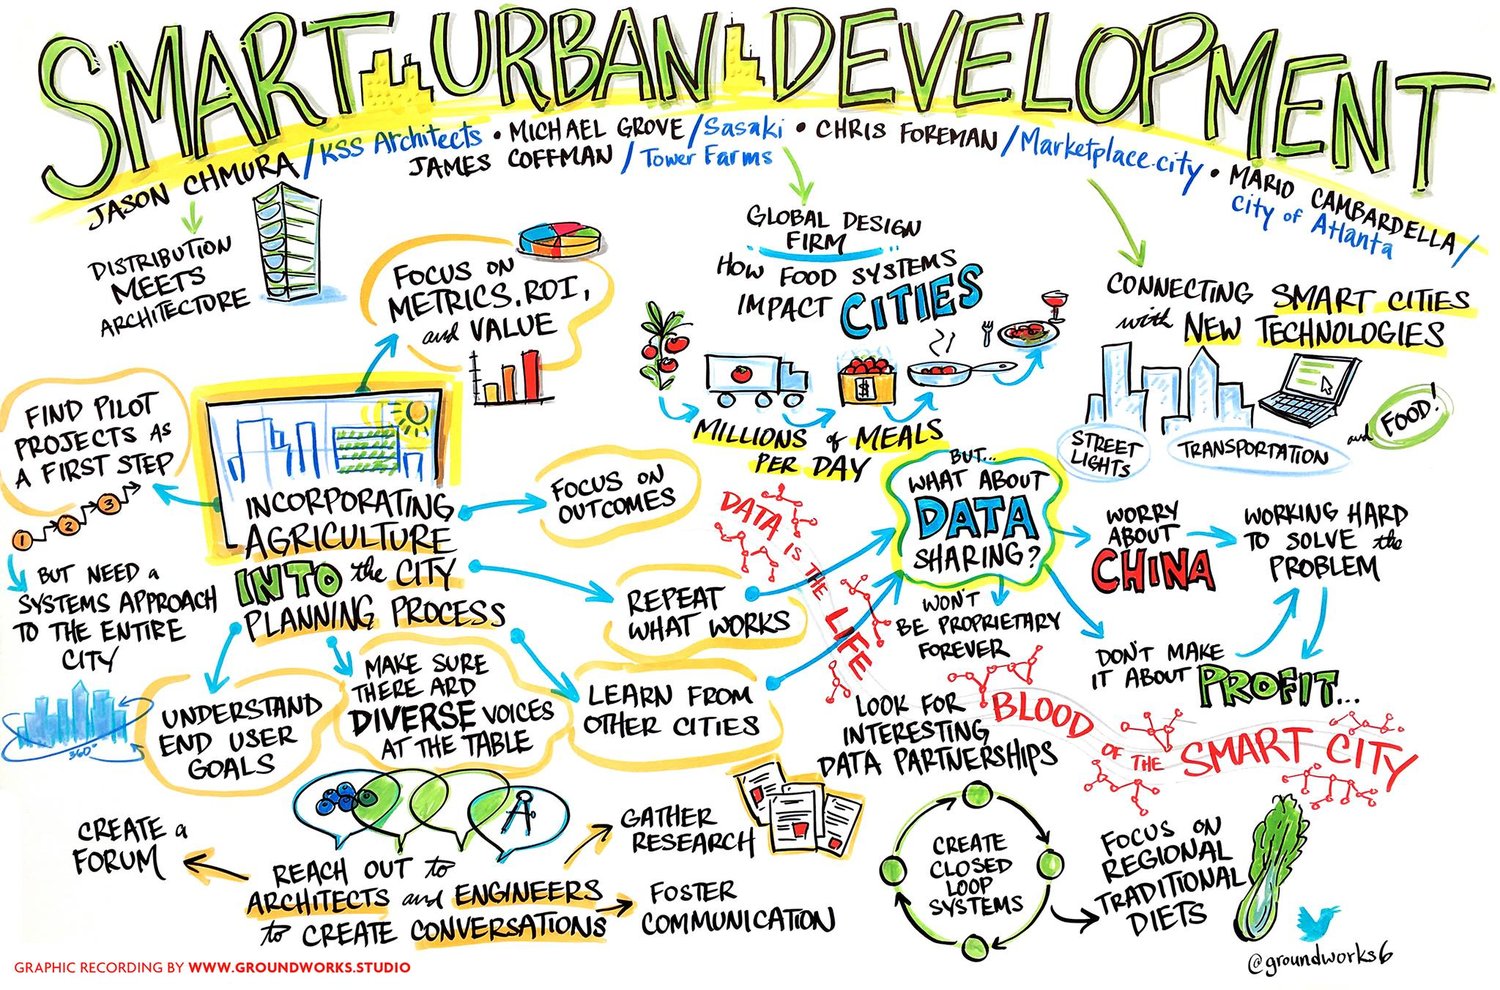 SMART URBAN DEVELOPMENT
JASON CHMURA / KSS Architects • MICHAEL GROVE / Sasaki • CHRIS FOREMAN / Marketplace.city • MARIO CAMBARDELLA /
JAMES COFFMAN / Tower Farms
City of Atlanta
DISTRIBUTION
MEETS
ARCHITECTURE
FOCUS ON
METRICS, ROI,
and VALUE
GLOBAL DESIGN
FIRM
HOW FOOD SYSTEMS
IMPACT CITIES
$
MILLIONS of MEALS
PER DAY
CONNECTING SMART CITIES
with NEW TECHNOLOGIES
STREET
LIGHTS
TRANSPORTATION
and FOOD!
FIND PILOT
PROJECTS AS
A FIRST STEP
1 2 3
BUT NEED a
SYSTEMS APPROACH
TO THE ENTIRE
CITY
360°
INCORPORATING
AGRICULTURE
INTO the CITY
PLANNING PROCESS
FOCUS ON
OUTCOMES
REPEAT
WHAT WORKS
LEARN FROM
OTHER CITIES
MAKE SURE
THERE ARD
DIVERSE VOICES
AT THE TABLE
UNDERSTAND
END USER
GOALS
BUT...
WHAT ABOUT
DATA
SHARING?
WORRY
ABOUT
CHINA
WORKING HARD
TO SOLVE the
PROBLEM
DON'T MAKE
IT ABOUT PROFIT...
WON'T
BE PROPRIETARY
FOREVER
LOOK FOR
INTERESTING
DATA PARTNERSHIPS
DATA IS THE LIFE BLOOD OF THE SMART CITY
CREATE a
FORUM
REACH OUT to
ARCHITECTS and ENGINEERS
to CREATE CONVERSATIONS
GATHER
RESEARCH
FOSTER
COMMUNICATION
CREATE
CLOSED
LOOP
SYSTEMS
FOCUS ON
REGIONAL
TRADITIONAL
DIETS
@groundworks6
GRAPHIC RECORDING BY WWW.GROUNDWORKS.STUDIO